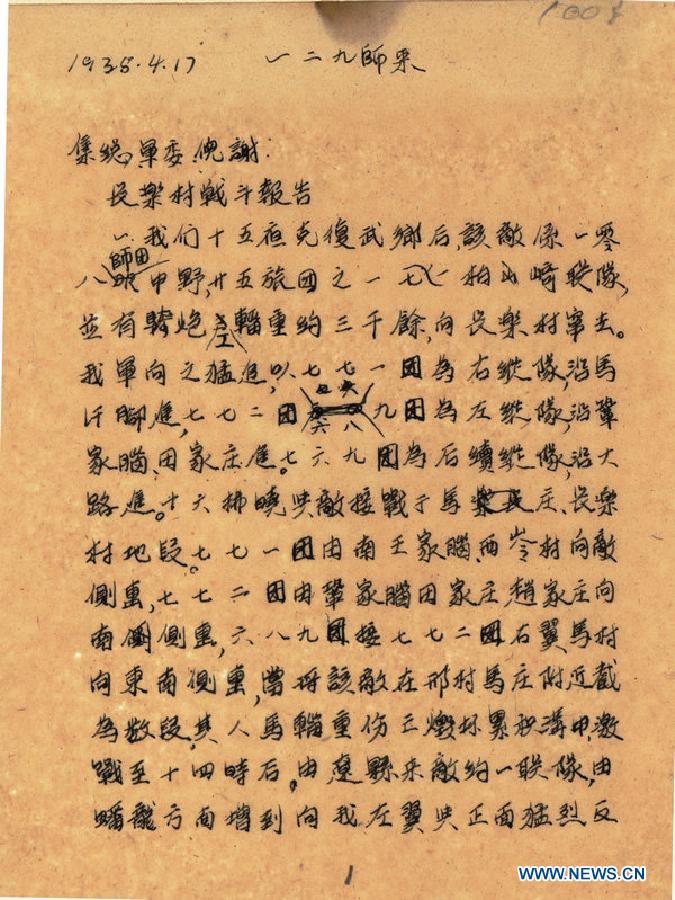 1938.4.17 一二九師来
集总,軍委,倪謝:
長樂村戰斗報告
一.我们十五夜克復武鄉后,該敵係一零
八師团甲野,廿五旅团之一一七柏山崎联隊,
並有騎炮工輜重約三千餘,向長樂村窜去。
我軍向之猛進,以七七一团為右縱隊,沿馬
脚進,七七二团六八九团為左縱隊,沿鞏
家腦、田家庄進。七六九团為后續縱隊,沿大
路進。十六拂曉與敵接戰于馬庄、長樂
村地段。七七一团由南王家腦、西岺村向敵
側擊,七七二团由鞏家腦田家庄趙家庄向
南側擊,六八九团接七七二团右翼馬村
向東南側擊,當將該敵在邢村馬庄附近截
為数段,其人馬輜重伤亡燬坏累积溝中,激
戰至十四時后,由遼縣来敵約一联隊,由
蟠龍方面增到向我左翼與正面猛烈反
1
WWW.NEWS.CN